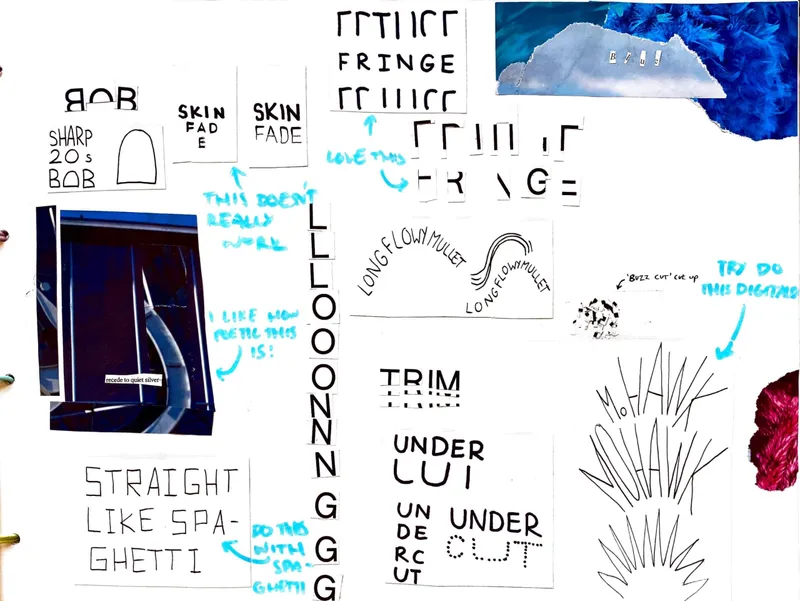 FRINGE
Blue
BOB
SKIN
FAD
E
SKIN
FADE
SHARP
20s
BOB
LOVE THIS
FRINGE
THIS DOESN'T
REALLY
WORK
LONG FLOWY MULLET
LONG FLOWY MULLET
'BUZZ CUT' CUT UP
TRY DO
THIS DIGITALLY
I LIKE HOW
POETIC THIS
IS!
recede to quiet silver
LLLOOONNNGGG
TRIM
MOHAWK
MOHAWK
UNDER
CUT
UN
DE
RC
UT
UNDER
CUT
STRAIGHT
LIKE SPA-
GHETTI
DO THIS
WITH
SPA-
GHETTI